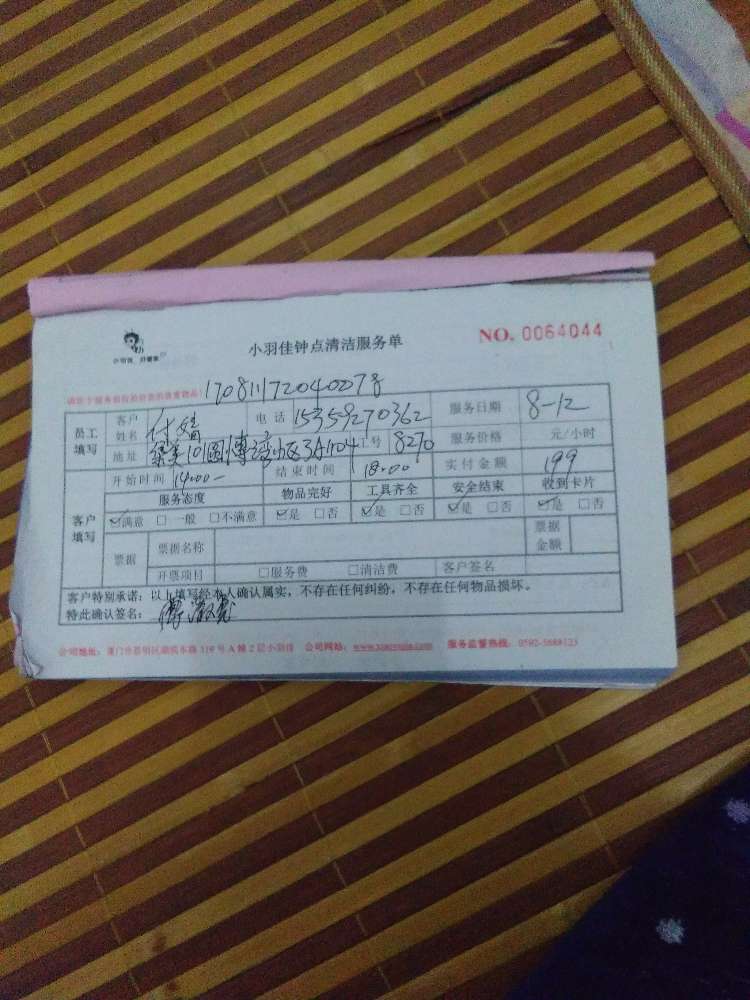 小羽佳 好管家
小羽佳钟点清洁服务单
NO. 0064044
17081172040007号
员工填写
客户姓名 付婧 电话 15359270362 服务日期 8-12
地址 集美101园博湾区3A1104 工号 8270 服务价格 元/小时
开始时间 14:00- 结束时间 18:00 实付金额 199
客户填写
服务态度 物品完好 工具齐全 安全结束 收到卡片
☑满意 □一般 □不满意 ☑是 □否 ☑是 □否 ☑是 □否 ☑是 □否
票据 票据名称 票据金额
开票项目 □服务费 □清洁费 客户签名
客户特别承诺：以上填写经本人确认属实，不存在任何纠纷，不存在任何物品损坏。
特此确认签名：
公司地址：厦门市思明区 319号A幢2层小羽佳 公司网站： 服务监督热线：